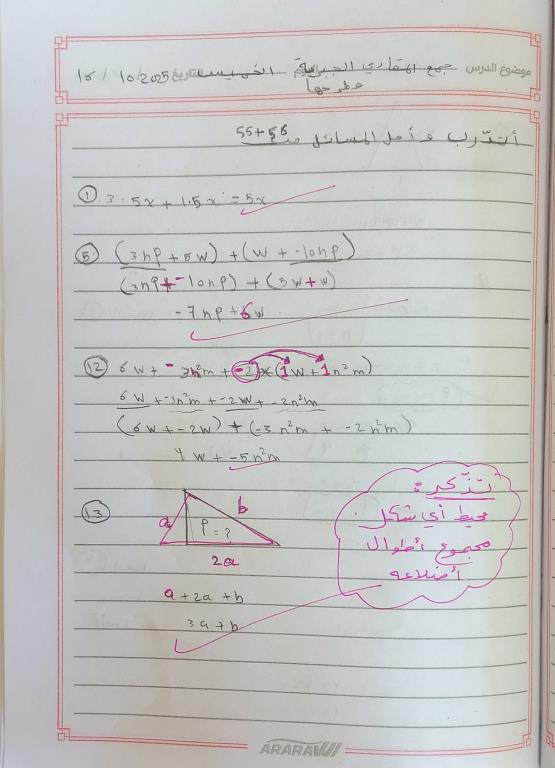 موضوع الدرس جمع المقادير الجبرية اليوم الخميس التاريخ 16 / 10/2025
وطرحها
أتدرب وأحل المسائل صـ 55+56
① 3.5x + 1.5x = 5x
⑤ (3np + 5w) + (w + -10np)
(3np + -10np) + (5w + w)
-7np + 6w
⑫ 6w + -3n²m + -2 × (1w + 1n²m)
6w + -3n²m + -2w + -2n²m
(6w + -2w) + (-3n²m + -2n²m)
4w + -5n²m
⑬ a b
P = ?
2a
a + 2a + b
3a + b
تذكر:
محيط أي شكل
مجموع أطوال
أضلاعه
ARARAWI